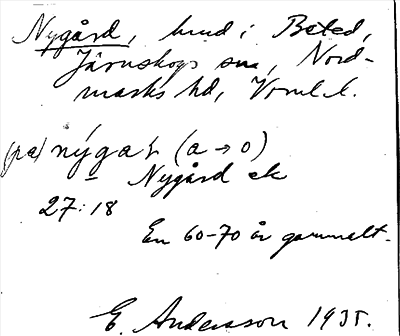 Nygård, hmd i Beted,
Järnskogs sn, Nord-
marks hd, Vrml. l.
(pa) nýgaɽ (a → o)
Nygård ek
27:18
En 60–70 år gammalt.
E. Andersson 1935.